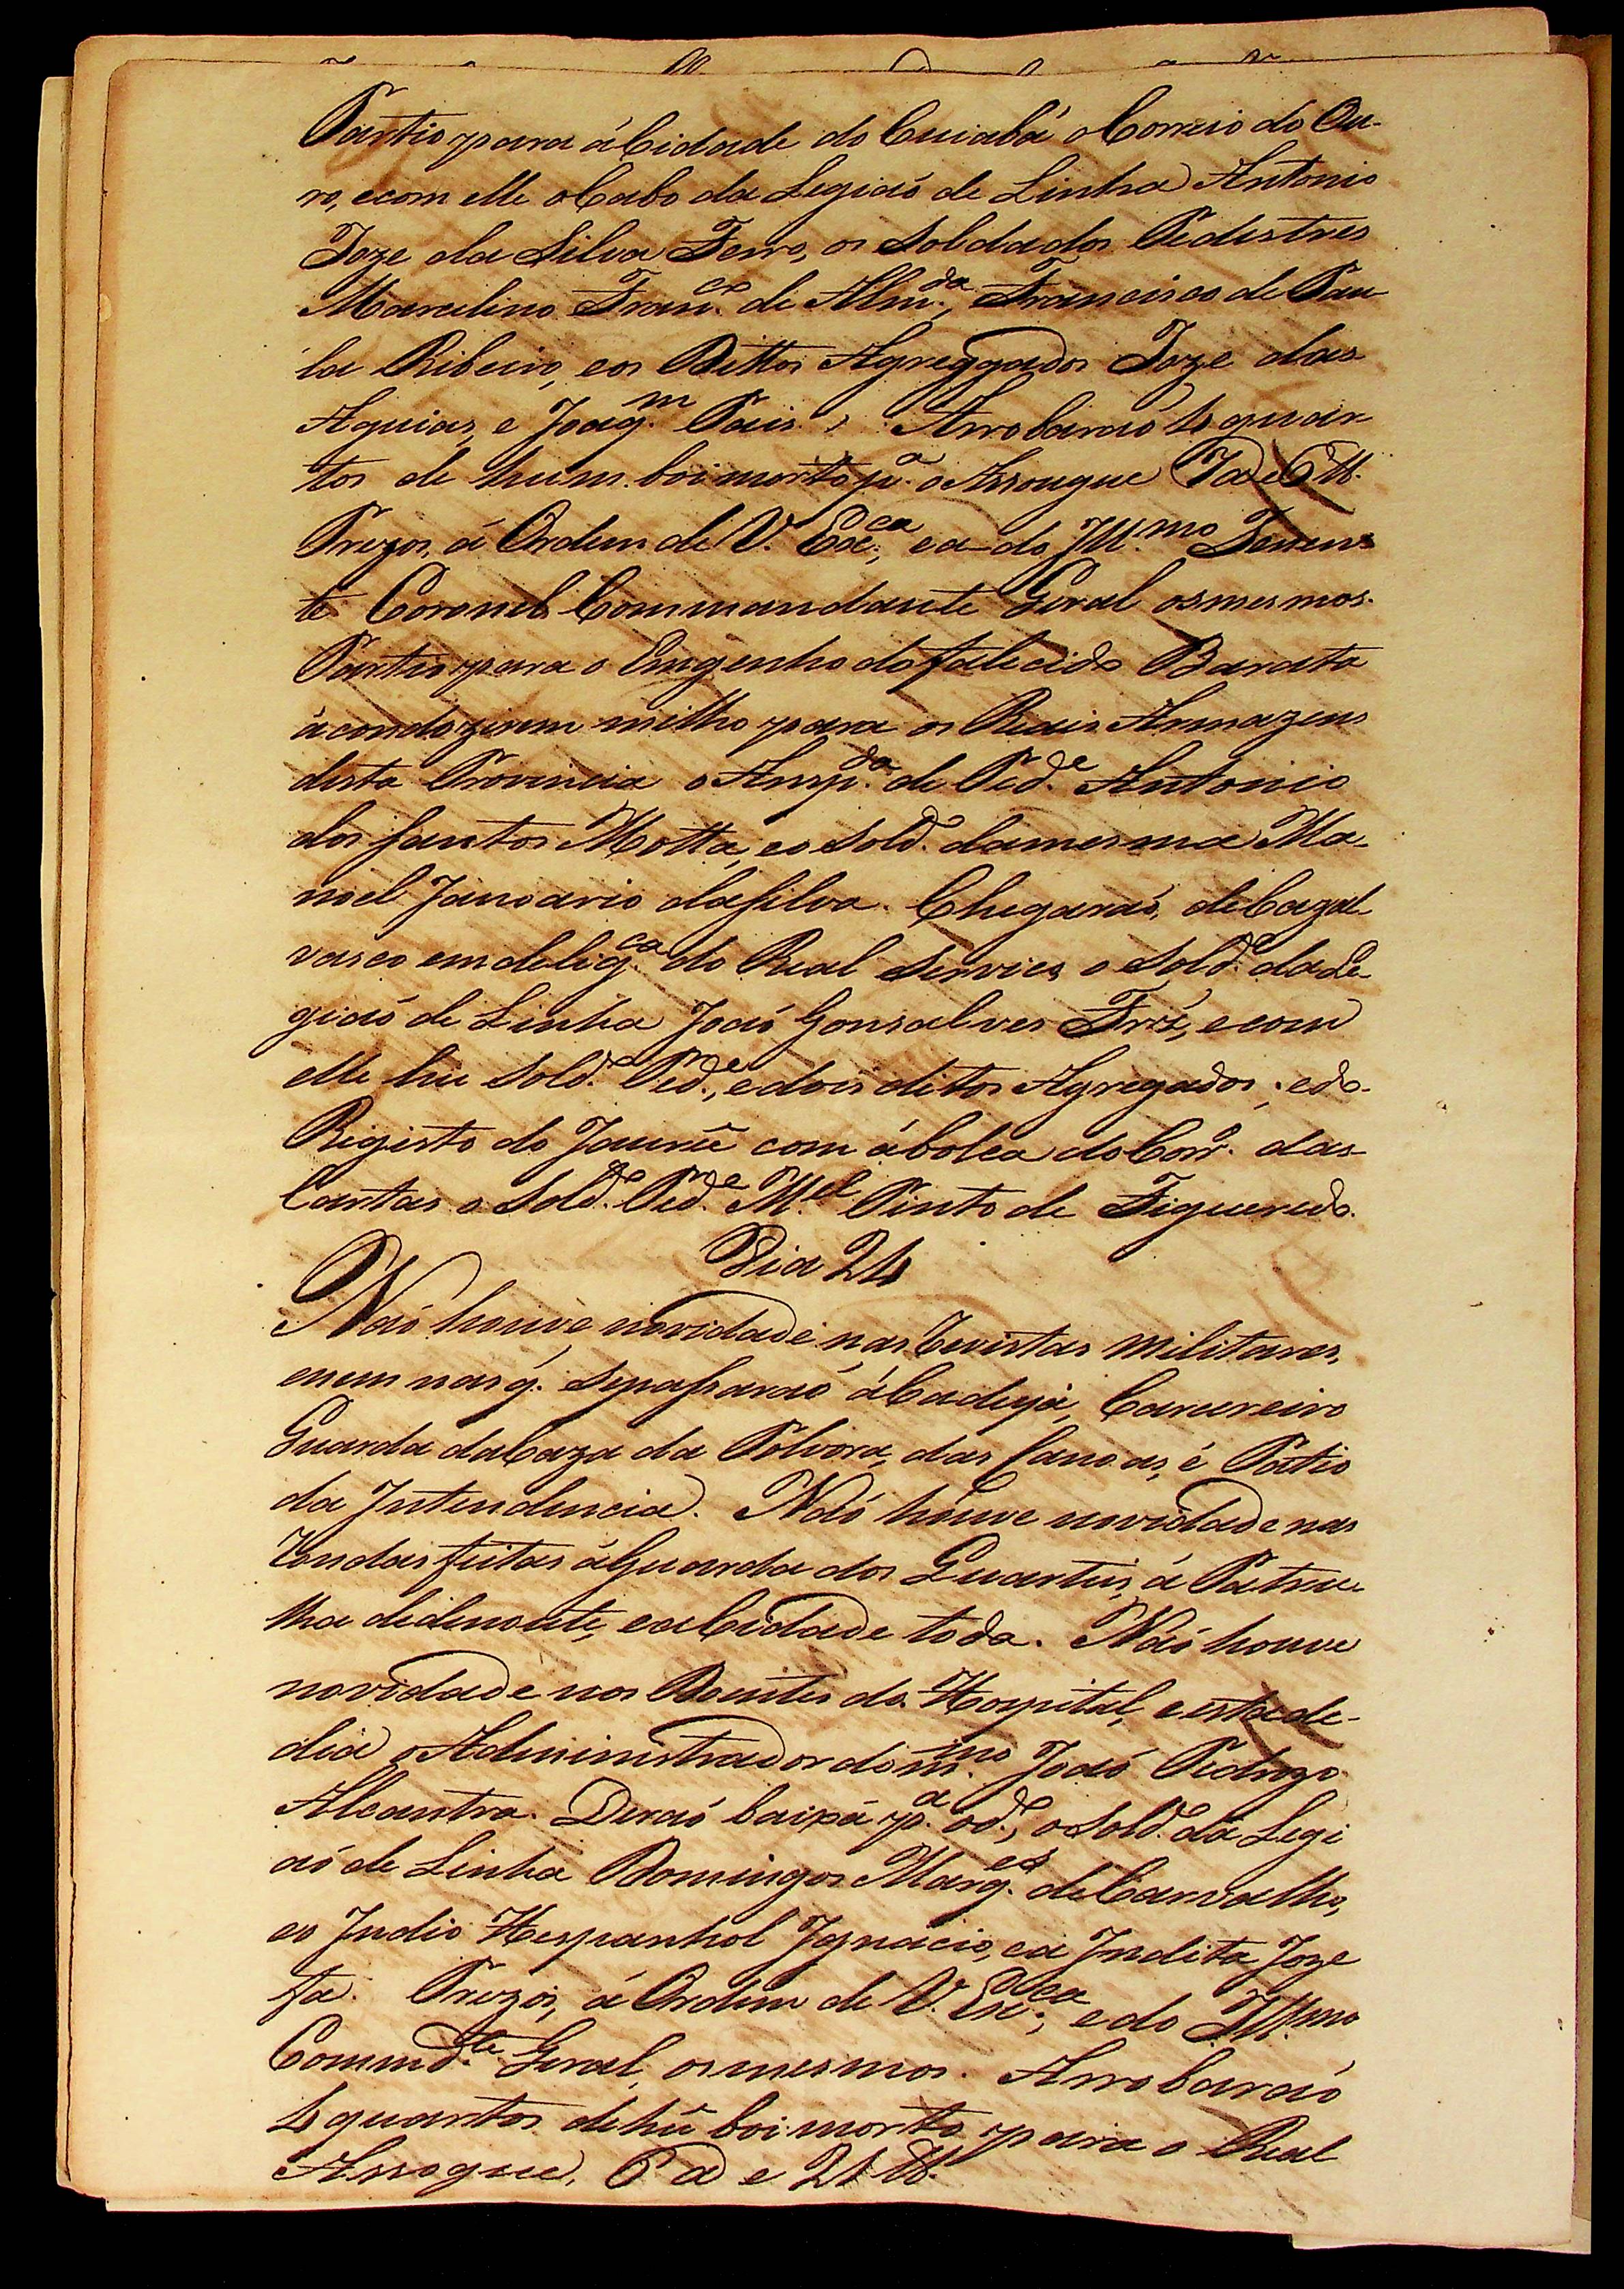 Partio para á Cidade do Cuiabá o Correio do Ou-
ro, e com elle o Cabo da Legiaõ de Linha Antonio
Joze da Silva Ferro, os Soldados Pedistres
Marcelino Fran.co de Alm.da, Francisco de Pau
la Ribeiro, e os Dittos Agreggados Joze das
Aguias, e Joaq.m Pais. Arrobaraõ 4 quar-
tos de hum boi morto p.a o Assougue 7@ e 6 ℔.
Prezos, á Ordem de V. Ex.ca, e a do Ill.mo Tenen-
te Coronel Commandante Geral os mesmos.
Partio para o Engenho do falecido Barata
á condozirem milho para os Reais Armazens
desta Provincia o Ansp.da de Ped.e Antonio
dos Santos Motta, e o Sold.o da mesma Ma-
noel Janoario da Silva. Chegaraõ, de Cazal-
vasco em delig.ca do Real Servico o Sold.o da Le-
giaõ de Linha Joaõ Gonsalves Friz, e com
elle hu Sold.o Ped.e, e dois ditos Agregados; e do
Rigisto do Jaurú com á bolca do Corr.o das
Cartas o Sold.o Ped.e M.el Pinto de Figueredo.
Dia 24
Naõ houve novidade nas Revistas militares,
e nem nas q. se passaraõ á Cadeya, Carcereiro
Guarda da Caza da Polvora, das Canoas, é Patio
da Intendencia. Naõ houve novidade nas
rondas feitas á Guarda dos Quarteis, á Patru-
lha dedenoute, e a Cidade toda. Naõ houve
novidade nos Doentes do Hospital, e está de
dia o Administrador do m.mo Joaõ Pedrozo
Alcantra. Deraõ baixa p.a o d.o, o Sold.o da Legi
aõ de Linha Domingos Marq.es de Carvalho,
e o Indio Hespanhol Ignacio, e a Indita Joze
fa. Prezos, á Ordem de V. Ex.ca, e do Ill.mo
Command.te Geral, os mesmos. Arrobaraõ
4 quartos de hũ boi morto para o Real
Assogue, 6@ e 24 ℔.